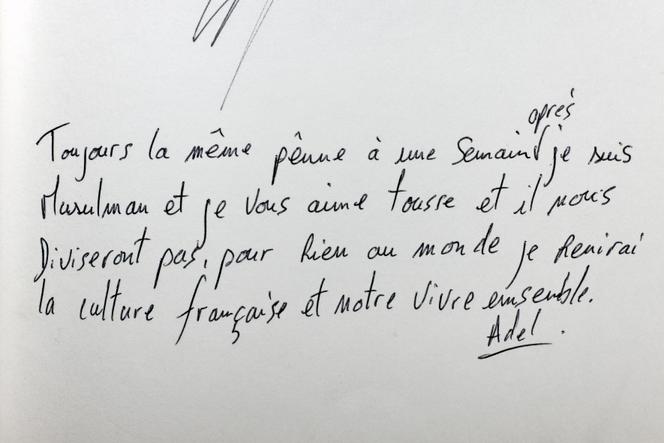 après
Toujours la même pênne à une Semain je suis
Musulman et je Vous aime tousse et il nous
Diviseront pas, pour Rien au monde je Renirai
la culture française et notre vivre ensemble.
Adel.